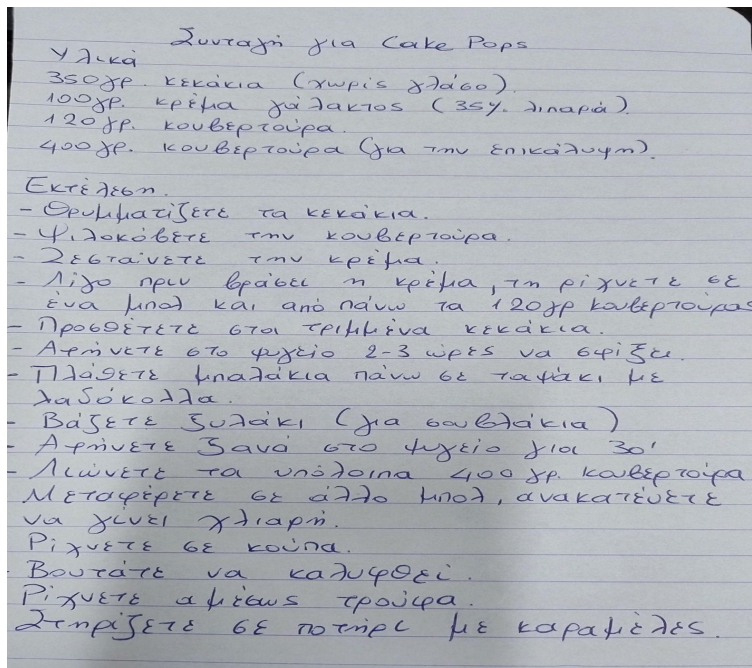 Συνταγή για Cake Pops
Υλικά
350γρ. κεκάκια (χωρίς γλάσο).
100γρ. κρέμα γάλακτος (35% λιπαρά).
120γρ. κουβερτούρα.
400γρ. κουβερτούρα (για την επικάλυψη).
Εκτέλεση.
- Θρυμματίζετε τα κεκάκια.
- Ψιλοκόβετε την κουβερτούρα.
- Ζεσταίνετε την κρέμα.
- Λίγο πριν βράσει η κρέμα, τη ρίχνετε σε
ένα μπολ και από πάνω τα 120γρ κουβερτούρας
- Προσθέτετε στα τριμμένα κεκάκια.
- Αφήνετε στο ψυγείο 2-3 ώρες να σφίξει.
- Πλάθετε μπαλάκια πάνω σε ταψάκι με
λαδόκολλα.
- Βάζετε ξυλάκι (για σουβλάκια)
- Αφήνετε ξανά στο ψυγείο για 30'
- Λιώνετε τα υπόλοιπα 400 γρ. κουβερτούρα
Μεταφέρετε σε άλλο μπολ, ανακατεύετε
να γίνει χλιαρή.
Ρίχνετε σε κούπα.
- Βουτάτε να καλυφθεί.
Ρίχνετε αμέσως τρούφα.
Στηρίζετε σε ποτήρι με καραμέλες.